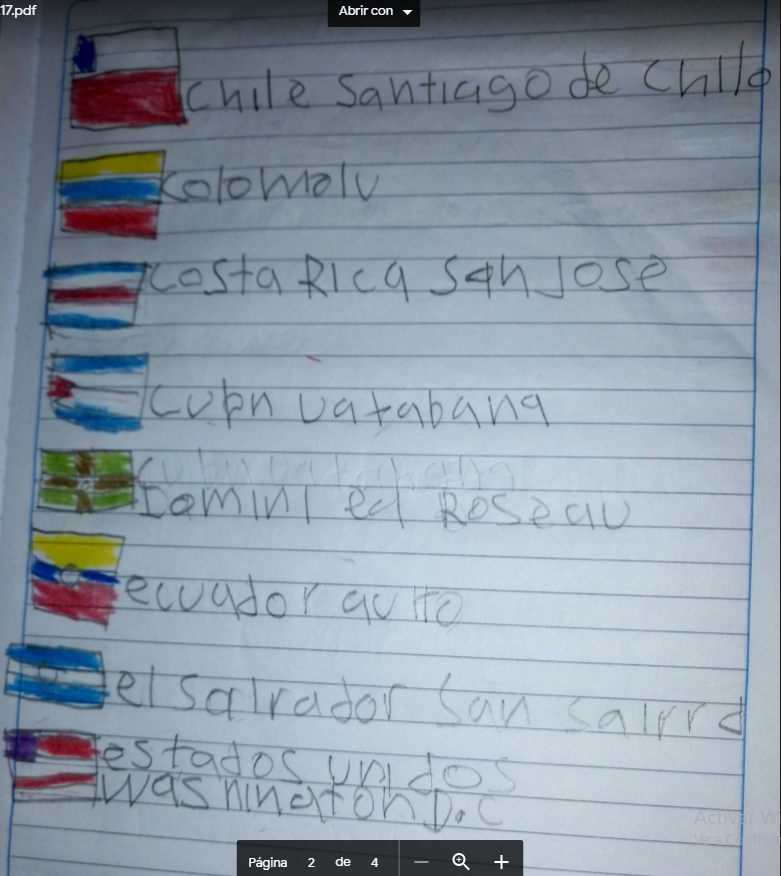 17.pdf
Abrir con
chile santiago de chllo
colomalv
costa Rica san Jose
cubn vatabana
cubn vatabana
Domini ed Roseau
ecuador quito
el salrador san salrrd
estados unidos
washington D.C
Activar W
Ve a Configu
Página 2 de 4